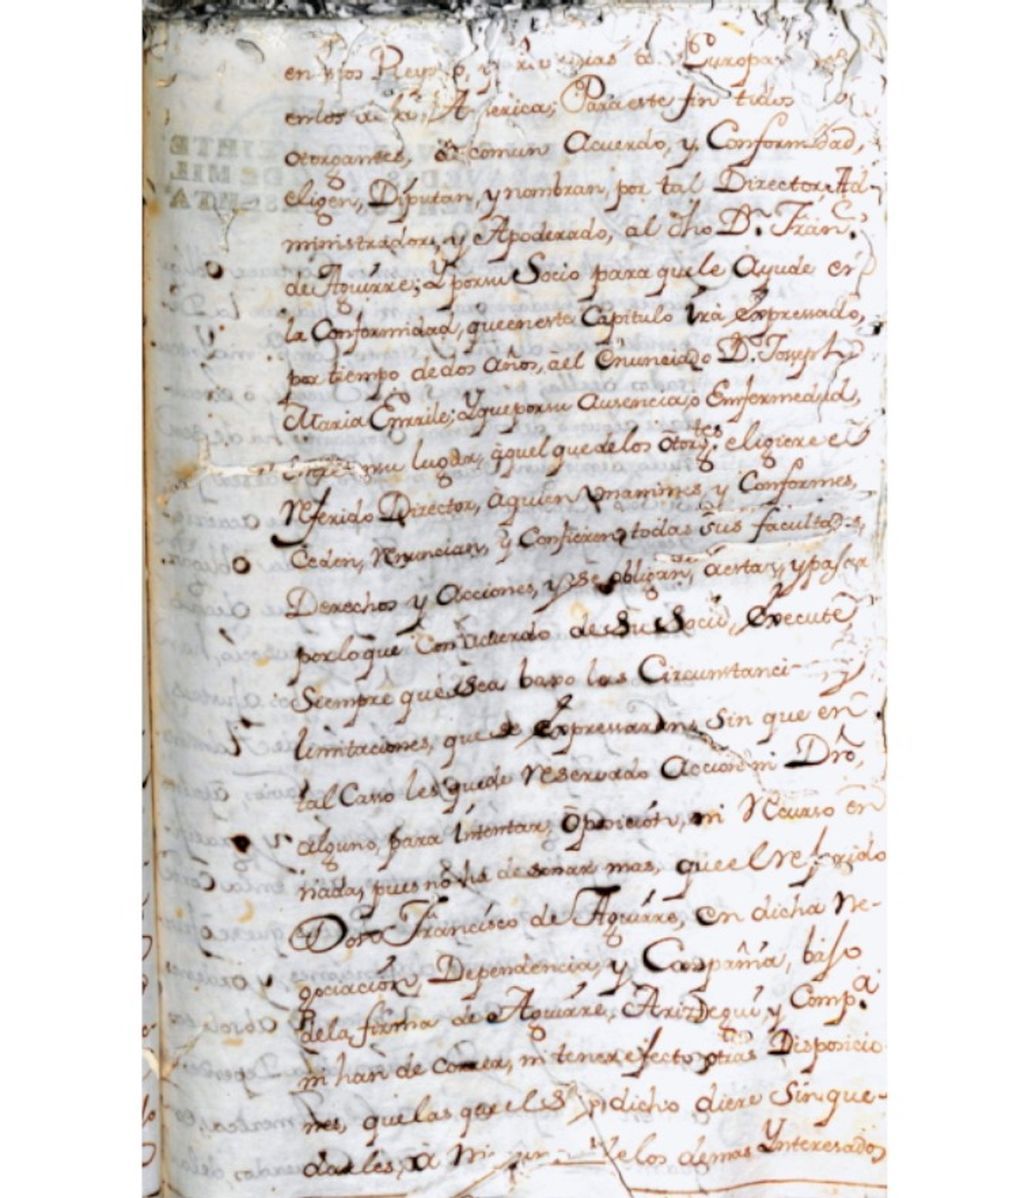 en los Reynos, y de Europa
en los de la America; Para este fin todos
otorgantes, de comun Acuerdo, y Conformidad,
eligen, Diputan, y nombran, por tal Director, Ad-
ministrador, y Apoderado, al dho Dn. Franco.
de Aguirre; Y por su Socio para que le Ayude en
la Conformidad, que en este Capitulo Irà Expressado,
por tiempo de dos Años, à el Enunciado Dn. Joseph
Maria Enrile; Y que por su Ausencia, o Enfermedad,
su lugar, aquel que de los Otorgtes. eligiere el
referido Director, a quien Vnanimes y Conformes,
Ceden, Renuncian, y Confieren todas sus facultades,
Derechos y Acciones, y se obligan, à estar, y passar
por lo que Con Acuerdo de su Socio, Execute
Siempre que sea baxo las Circunstanci-
limitaciones, que se Expressaran, Sin que en
tal Casso les quede reservado Accion ni Dro,
alguno, para Intentar, Oposicion, ni Recurso en
nada, pues no ha de sonar mas, que el referido
Don Francisco de Aguirre, en dicha Ne-
gociacion, Dependencia, y Compañia, baxo
de la firma de Aguirre, Aristegui, y Compa.
ni han de Correr, ni tener efecto otras Disposicio-
nes, que las que el Sr. dicho, diere Sin que-
darles, à Ni de los demas Ynteresados